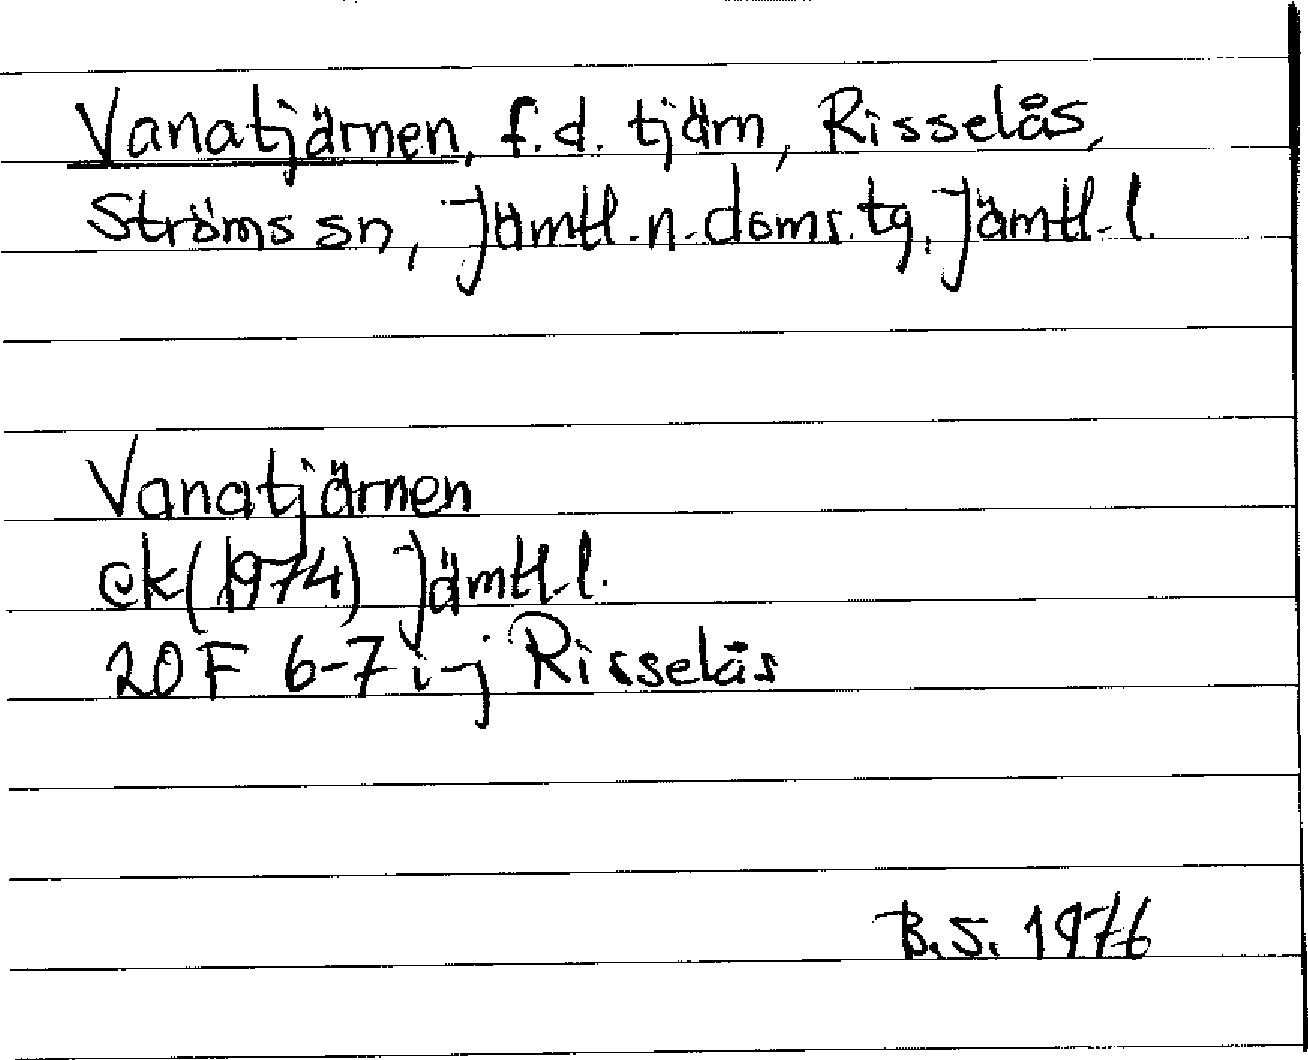 Vanatjärnen, f.d. tjärn, Risselås,
Ströms sn, Jämtl. n. doms. tg, Jämtl. l.
Vanatjärnen
ek (1974) Jämtl. l.
20F 6-7 i-j Risselås
B.S. 1976